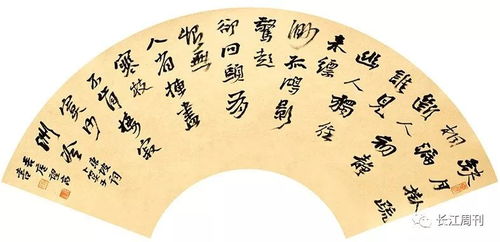 缺月掛疏
桐漏
斷人初靜
誰見
幽人獨往
來縹
緲孤鴻影
驚起
卻回頭有
恨無
人省揀盡
寒枝
不肯棲寂
寞沙
洲冷
東坡詞
卜算子
长江周刊